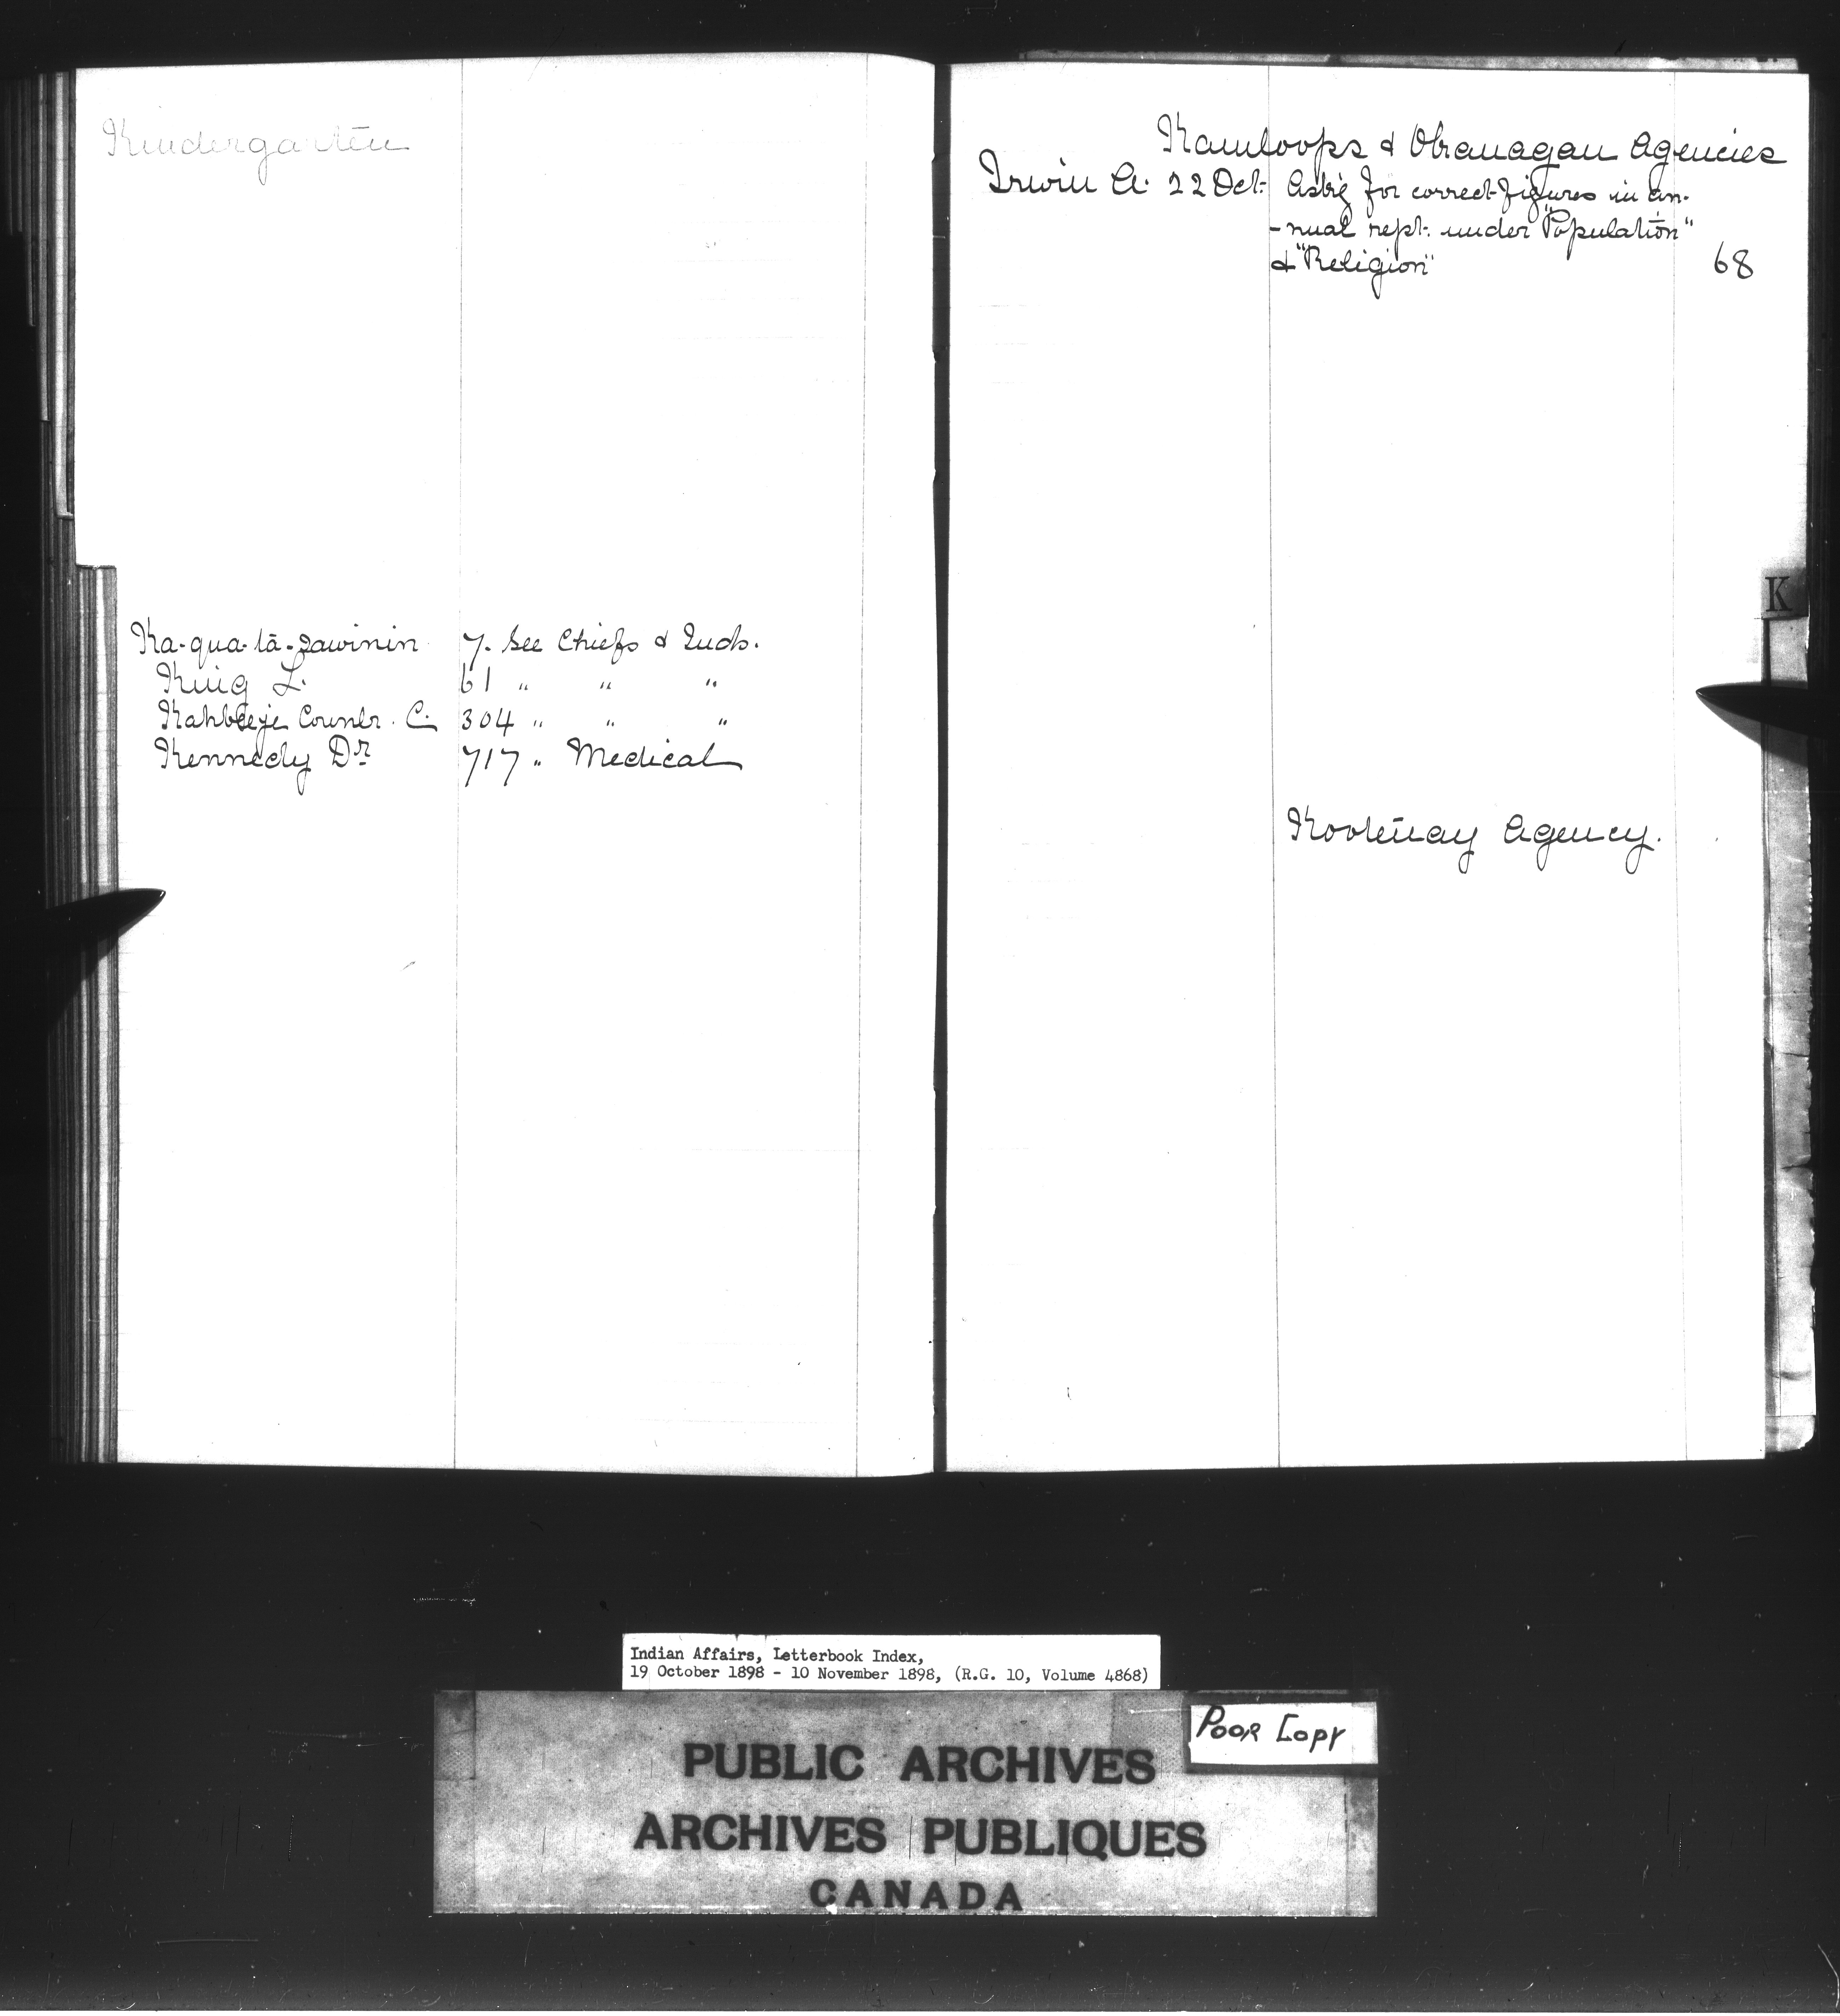 Kindergarten
Ka-qua-ta-sawinin 7. See Chiefs & Inds.
King L. 61 " " "
Kahbeeje Counlr. C. 304 " " "
Kennedy Dr 717 " Medical
Kamloops & Okanagan Agencies
Irwin A. 22 Oct. Askg for correct figures in an-
-nual rept. under "Population"
& "Religion" 68
K
Kootenay Agency.
Indian Affairs, Letterbook Index,
19 October 1898 - 10 November 1898, (R.G. 10, Volume 4868)
Poor Copy
PUBLIC ARCHIVES
ARCHIVES PUBLIQUES
CANADA